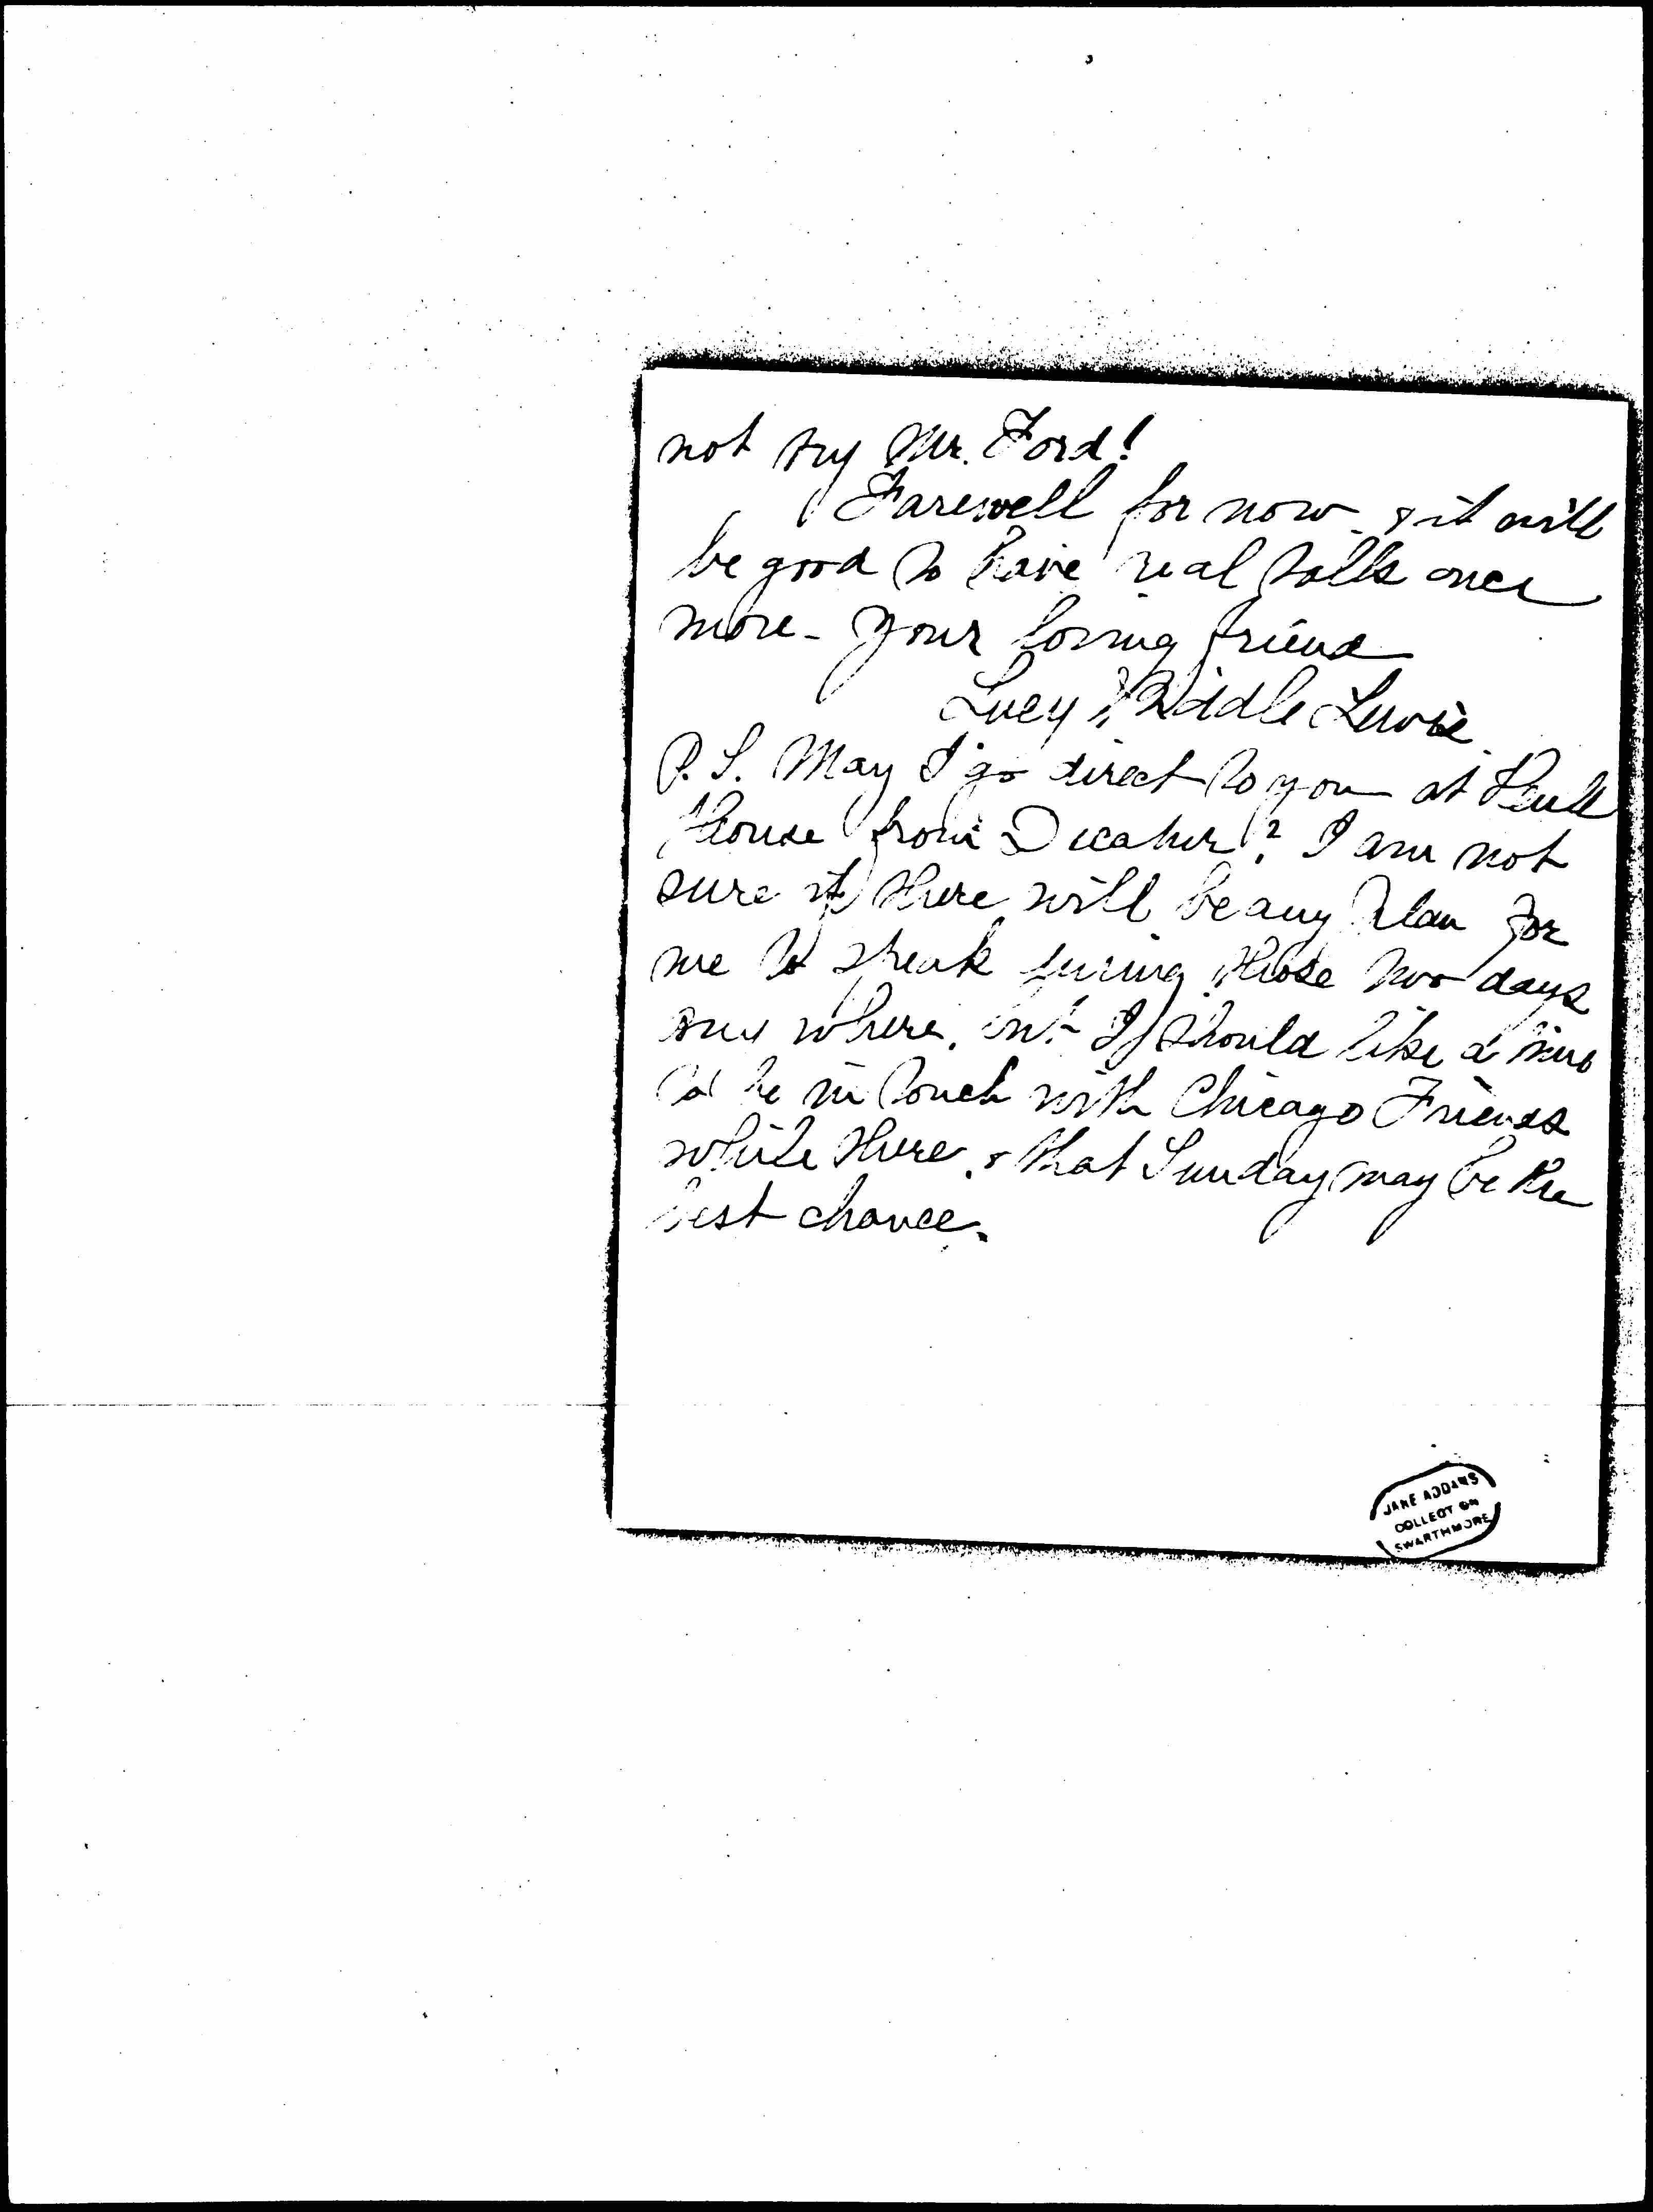 not try Mr. Ford!
Farewell for now - & it will
be good to have real talks once
more - Your loving friend
Lucy Biddle Lewis
P.S. May I go direct to you at Hull
House from Decatur? I am not
sure if there will be any plan for
me to speak during those two days
any where, but I should like a time
to be in touch with Chicago Friends
while there, & that Sunday may be the
best chance.
JANE ADDAMS
COLLECTION
SWARTHMORE